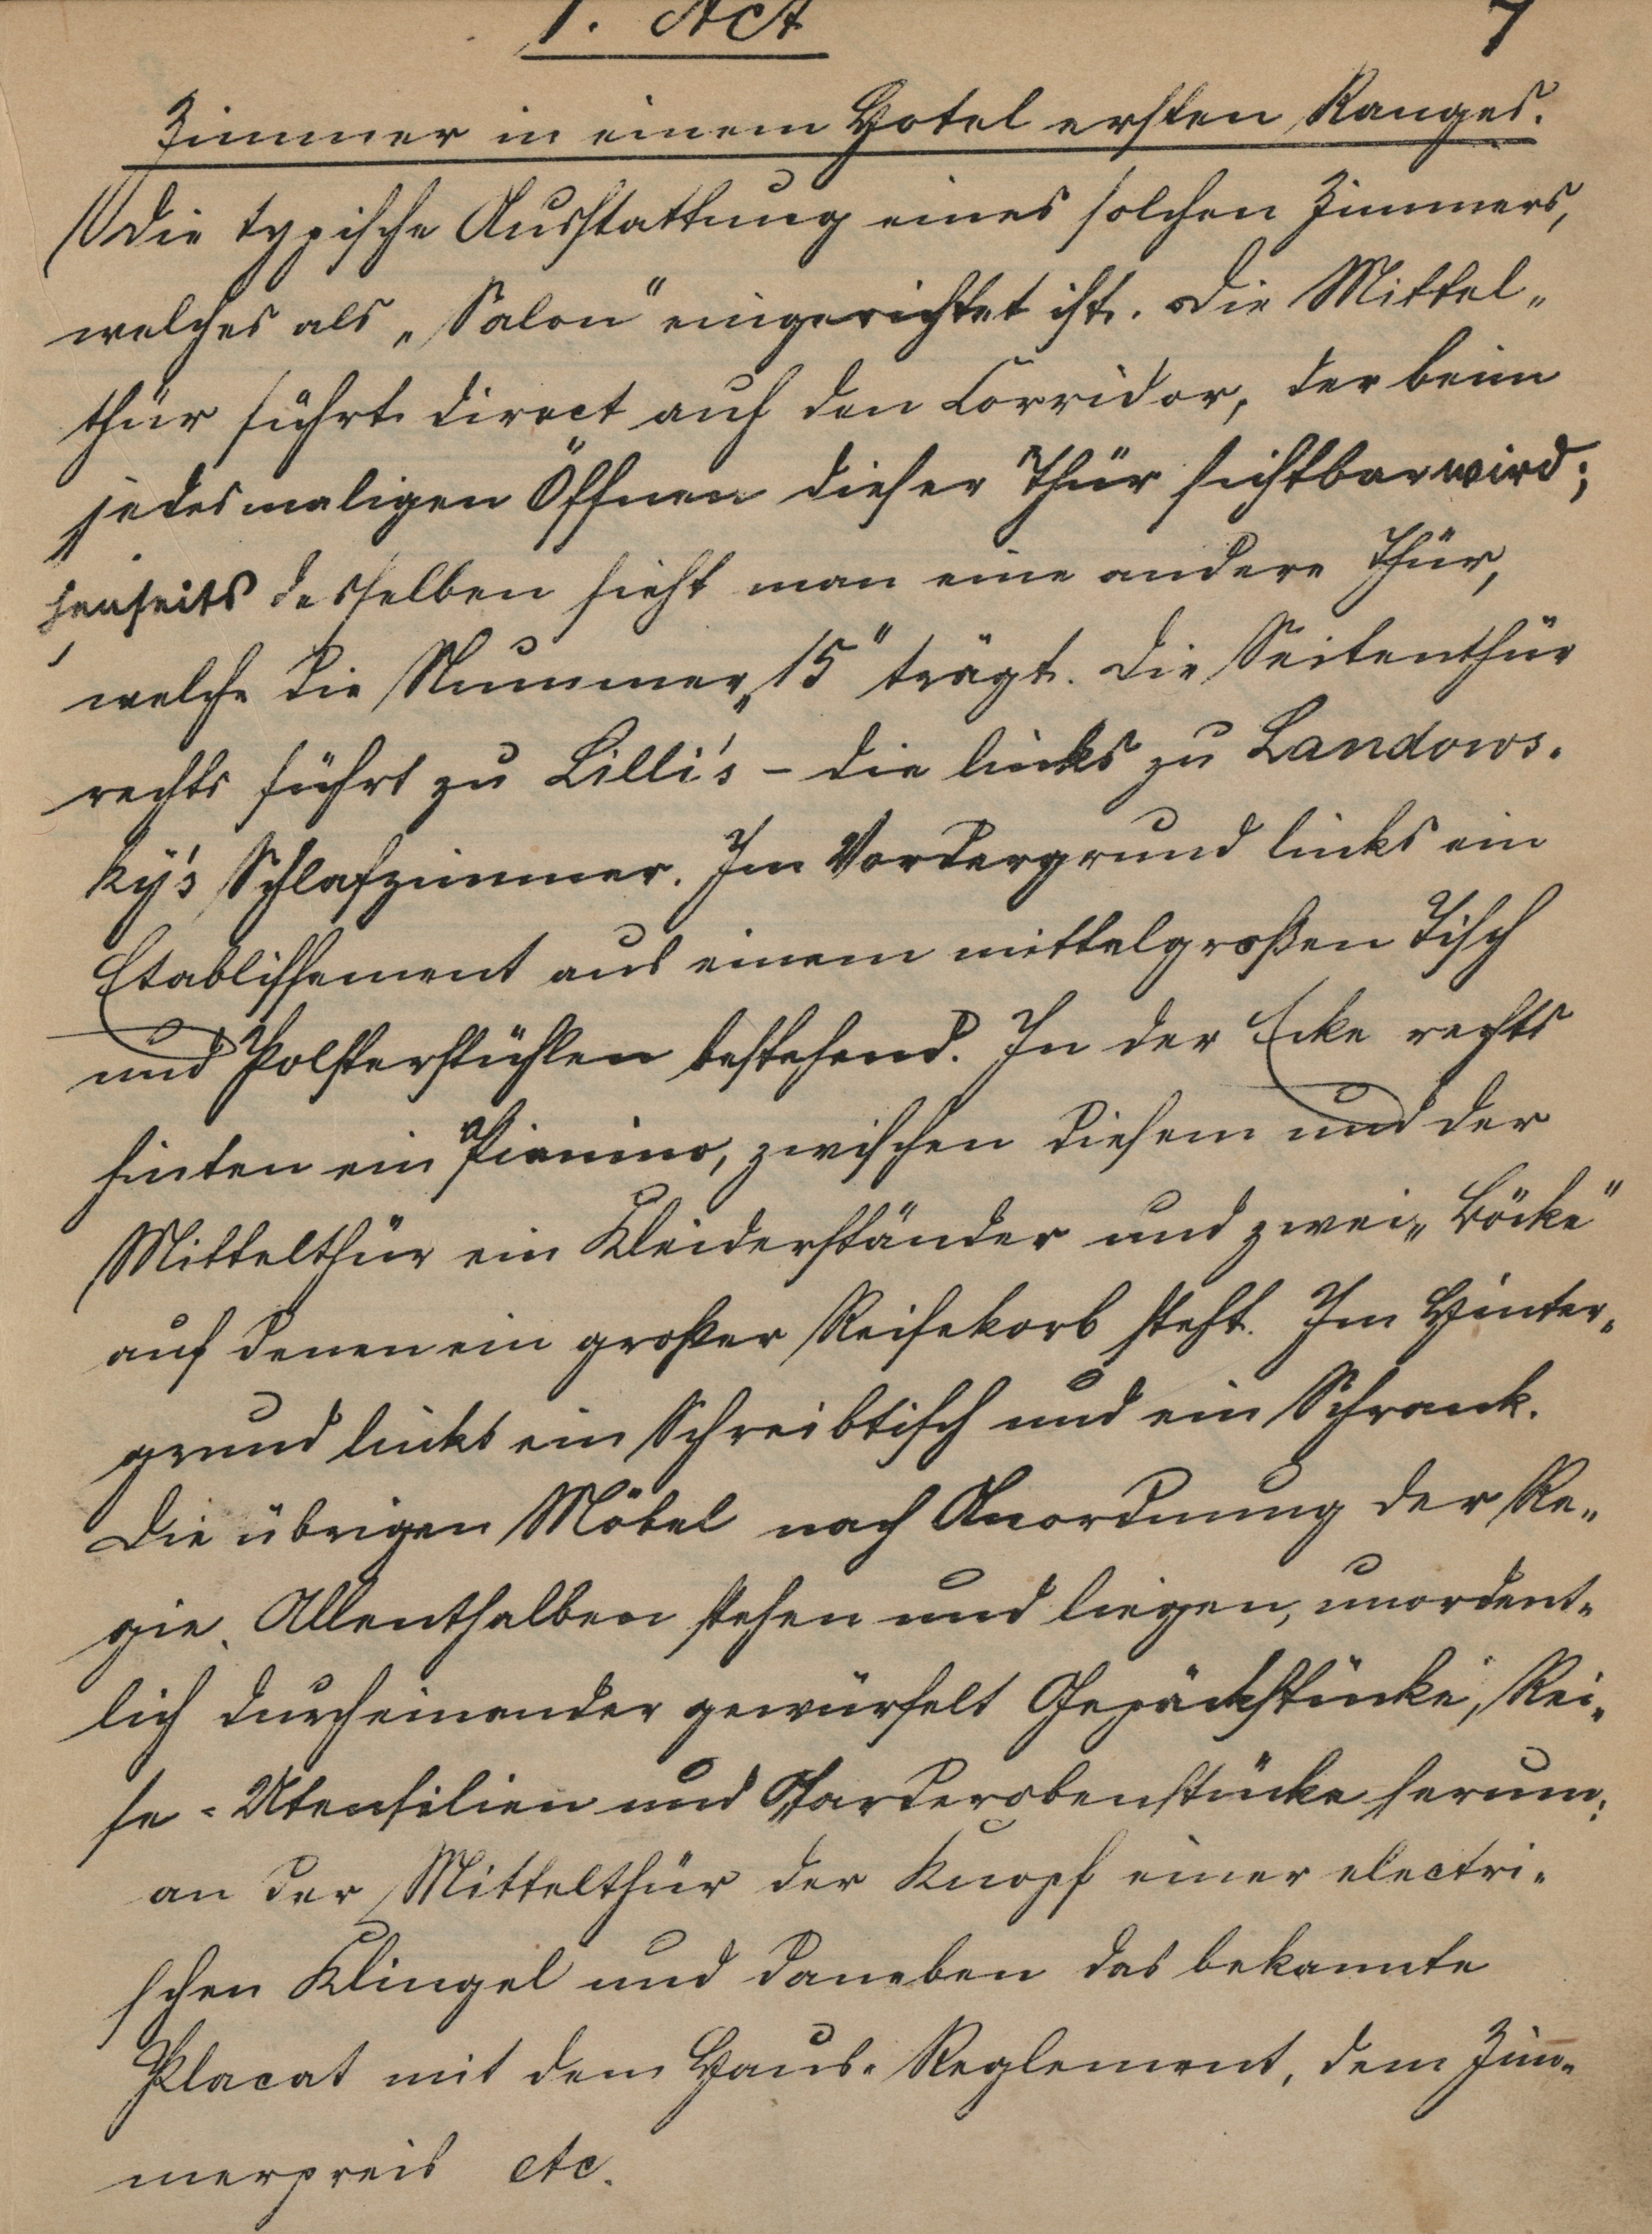 1. Act
7
Zimmer in einem Hotel ersten Ranges.
(Die typische Ausstattung eines solchen Zimmers,
welches als „Salon“ eingerichtet ist. Die Mittel-
thür führt direct auf den Corridor, der beim
jedesmaligen Öffnen dieser Thür sichtbar wird;
jenseits desselben sieht man eine andere Thür,
welche die Nummer „15“ trägt. Die Seitenthür
rechts führt zu Lilli's – die links zu Landows-
ky's Schlafzimmer. Im Vordergrund links ein
Etablissement aus einem mittelgroßen Tisch
und Polsterstühlen bestehend. In der Ecke rechts
hinten ein Pianino, zwischen diesem und der
Mittelthür ein Kleiderständer und zwei „Böcke“
auf denen ein großer Reisekorb steht. Im Hinter-
grund links ein Schreibtisch und ein Schrank.
Die übrigen Möbel nach Anordnung der Re-
gie. Allenthalben stehen und liegen, unordent-
lich durcheinander gewürfelt Gepäckstücke, Rei-
se-Utensilien und Garderobenstücke herum;
an der Mittelthür der Knopf einer electri-
schen Klingel und daneben das bekannte
Placat mit dem Haus-Reglement, dem Zim-
merpreis etc.